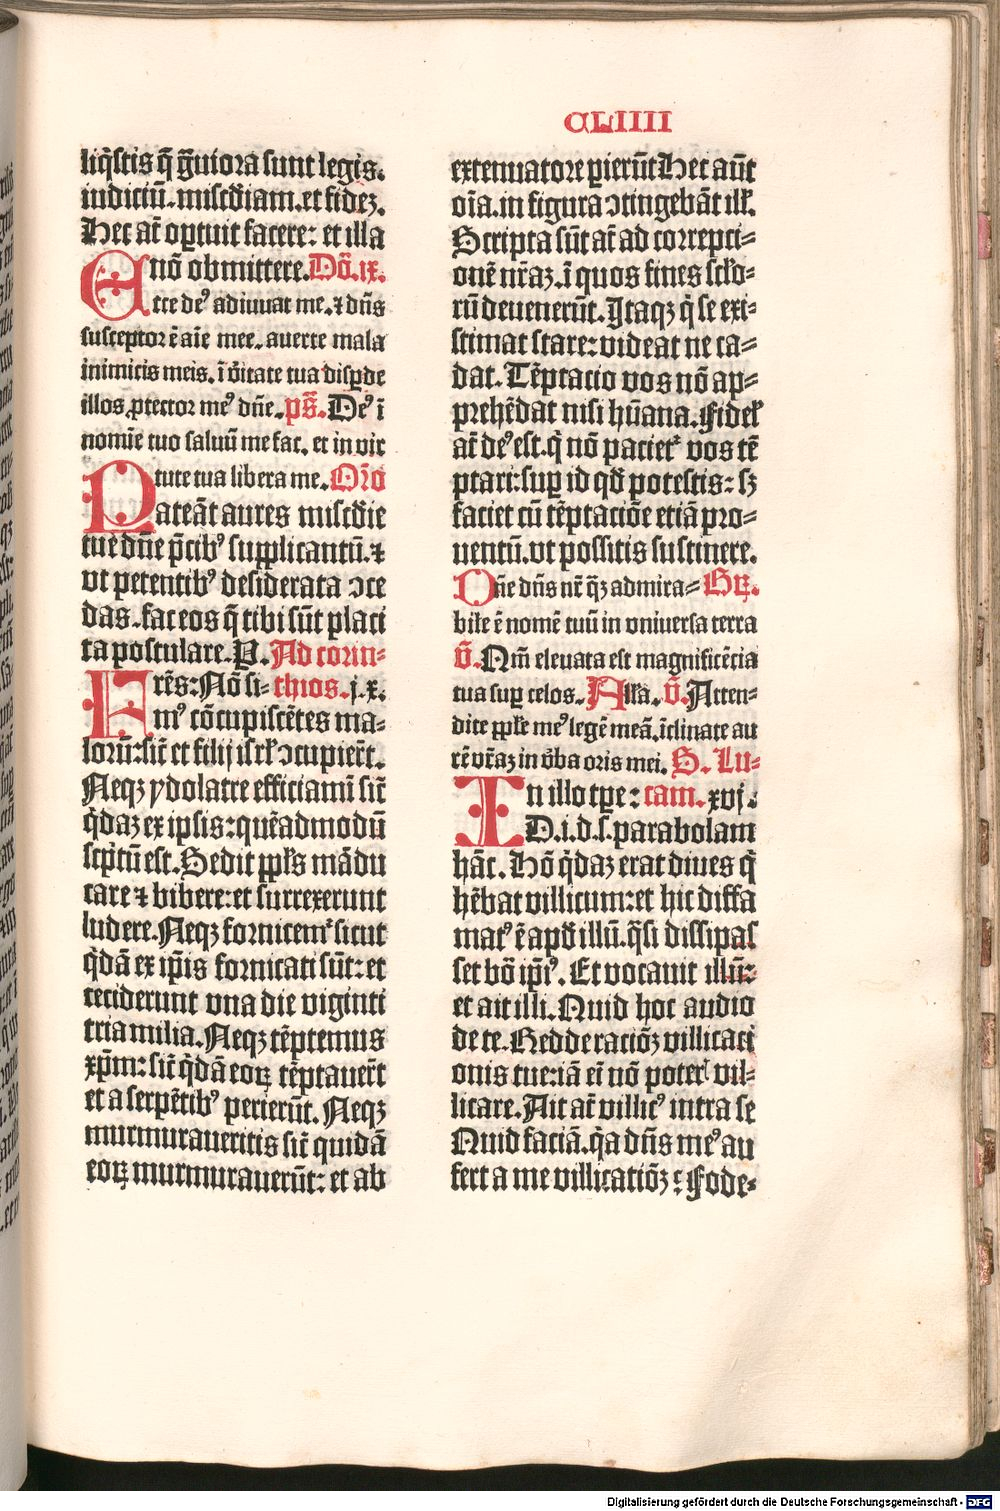 CLIIII
liq̃stis q̃ g̃uiora sunt legis.
iudiciū. misc̃diam. et fidez.
Hec at̄ oꝑtuit facere: et illa
nō obmittere. Dō. ix.
Ecce deꝰ adiuuat me. ⁊ dñs
susceptor ē aīe mee. auerte mala
inimicis meis. ī v̄itate tua disꝑde
illos ꝓtector meꝰ dñe. pš. Deꝰ ī
nomīe tuo saluū me fac. et in vir
tute tua libera me. Orō
Pateāt aures misc̃die
tue dñe p̄cibꝰ supplicantū. ⁊
vt petentibꝰ desiderata ↄce
das. fac eos q̃ tibi sūt placi
ta postulare. P. Ad corin-
Frēs: Nō si- thios. j. x.
mꝰ cōcupiscētes ma-
lorū: sic̄ et filij isrl̄ ↄcupier̄t.
Neqz ydolatre efficiamī sic̄
q̇daz ex ipsis: quēadmodū
scp̄tū est. Sedit ppl̄s mādu
care ⁊ bibere: et surrexerunt
ludere. Neqz fornicemꝰ sicut
q̇dā ex ip̄is fornicati sūt: et
ceciderunt vna die viginti
tria milia. Neqz tēptemus
xp̄m: sic̄ q̇dā eoꝝ tēptauer̄t
et a serpētibꝰ perierūt. Neqz
murmuraueritis sic̄ quidā
eoꝝ murmurauerūt: et ab
exterminatore ꝑierūt Hec aūt
oīa. in figura ↄtingebāt ill̓.
Scripta sūt at̄ ad correpci-
onē nr̄az. ī quos fines sclo-
rū deuenerūt. Itaqz q̇ se exi-
stimat stare: videat ne ca-
dat. Tēptacio vos nō ap-
prehēdat nisi hūana. Fidel̓
at̄ deꝰ est. q̇ nō pacietᷣ vos tē
ptari: suꝑ id qd̄ potestis: sz
faciet cū tēptaciōe etiā pro-
uentū. vt possitis sustinere.
Dñe dñs nr̄ q̃z admira- Gr̄.
bile ē nomē tuū in vniuersa terra
v̄. Qm̄ eleuata est magnificēcia
tua suꝑ celos. Alla. v̄. Atten-
dite pple meꝰ legē meā. īclinate au
rē vr̄az in v̄ba oris mei. S. Lu-
In illo tp̄e: cam. xvj.
D. i. d. s̄. parabolam
hāc. Hō q̇daz erat diues q̇
hēbat villicum: et hic diffa
matꝰ ē apd̄ illū. q̃si dissipas
set bō ip̄iꝰ. Et vocauit illū:
et ait illi. Quid hoc audio
de te. Redde raciōz villicaci
onis tue: iā eī nō poteris vil-
licare. Ait at̄ villicꝰ intra se
Quid faciā. q̇a dñs meꝰ au
fert a me villicatiōz: Fode-
Digitalisierung gefördert durch die Deutsche Forschungsgemeinschaft - DFG